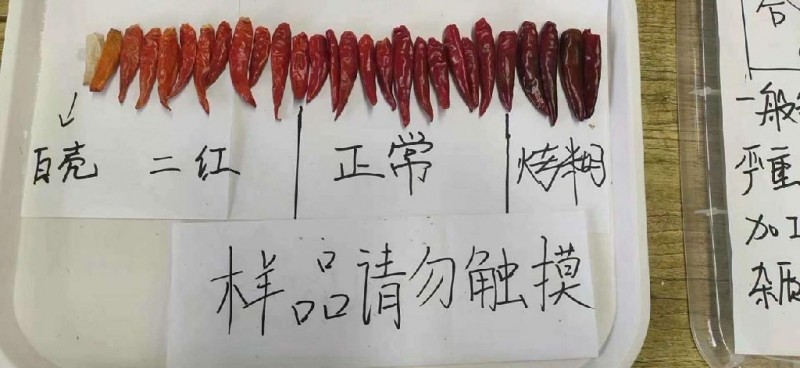 白壳 二红 正常 烤糊
样品请勿触摸
合
一般
严重
加工
杂质